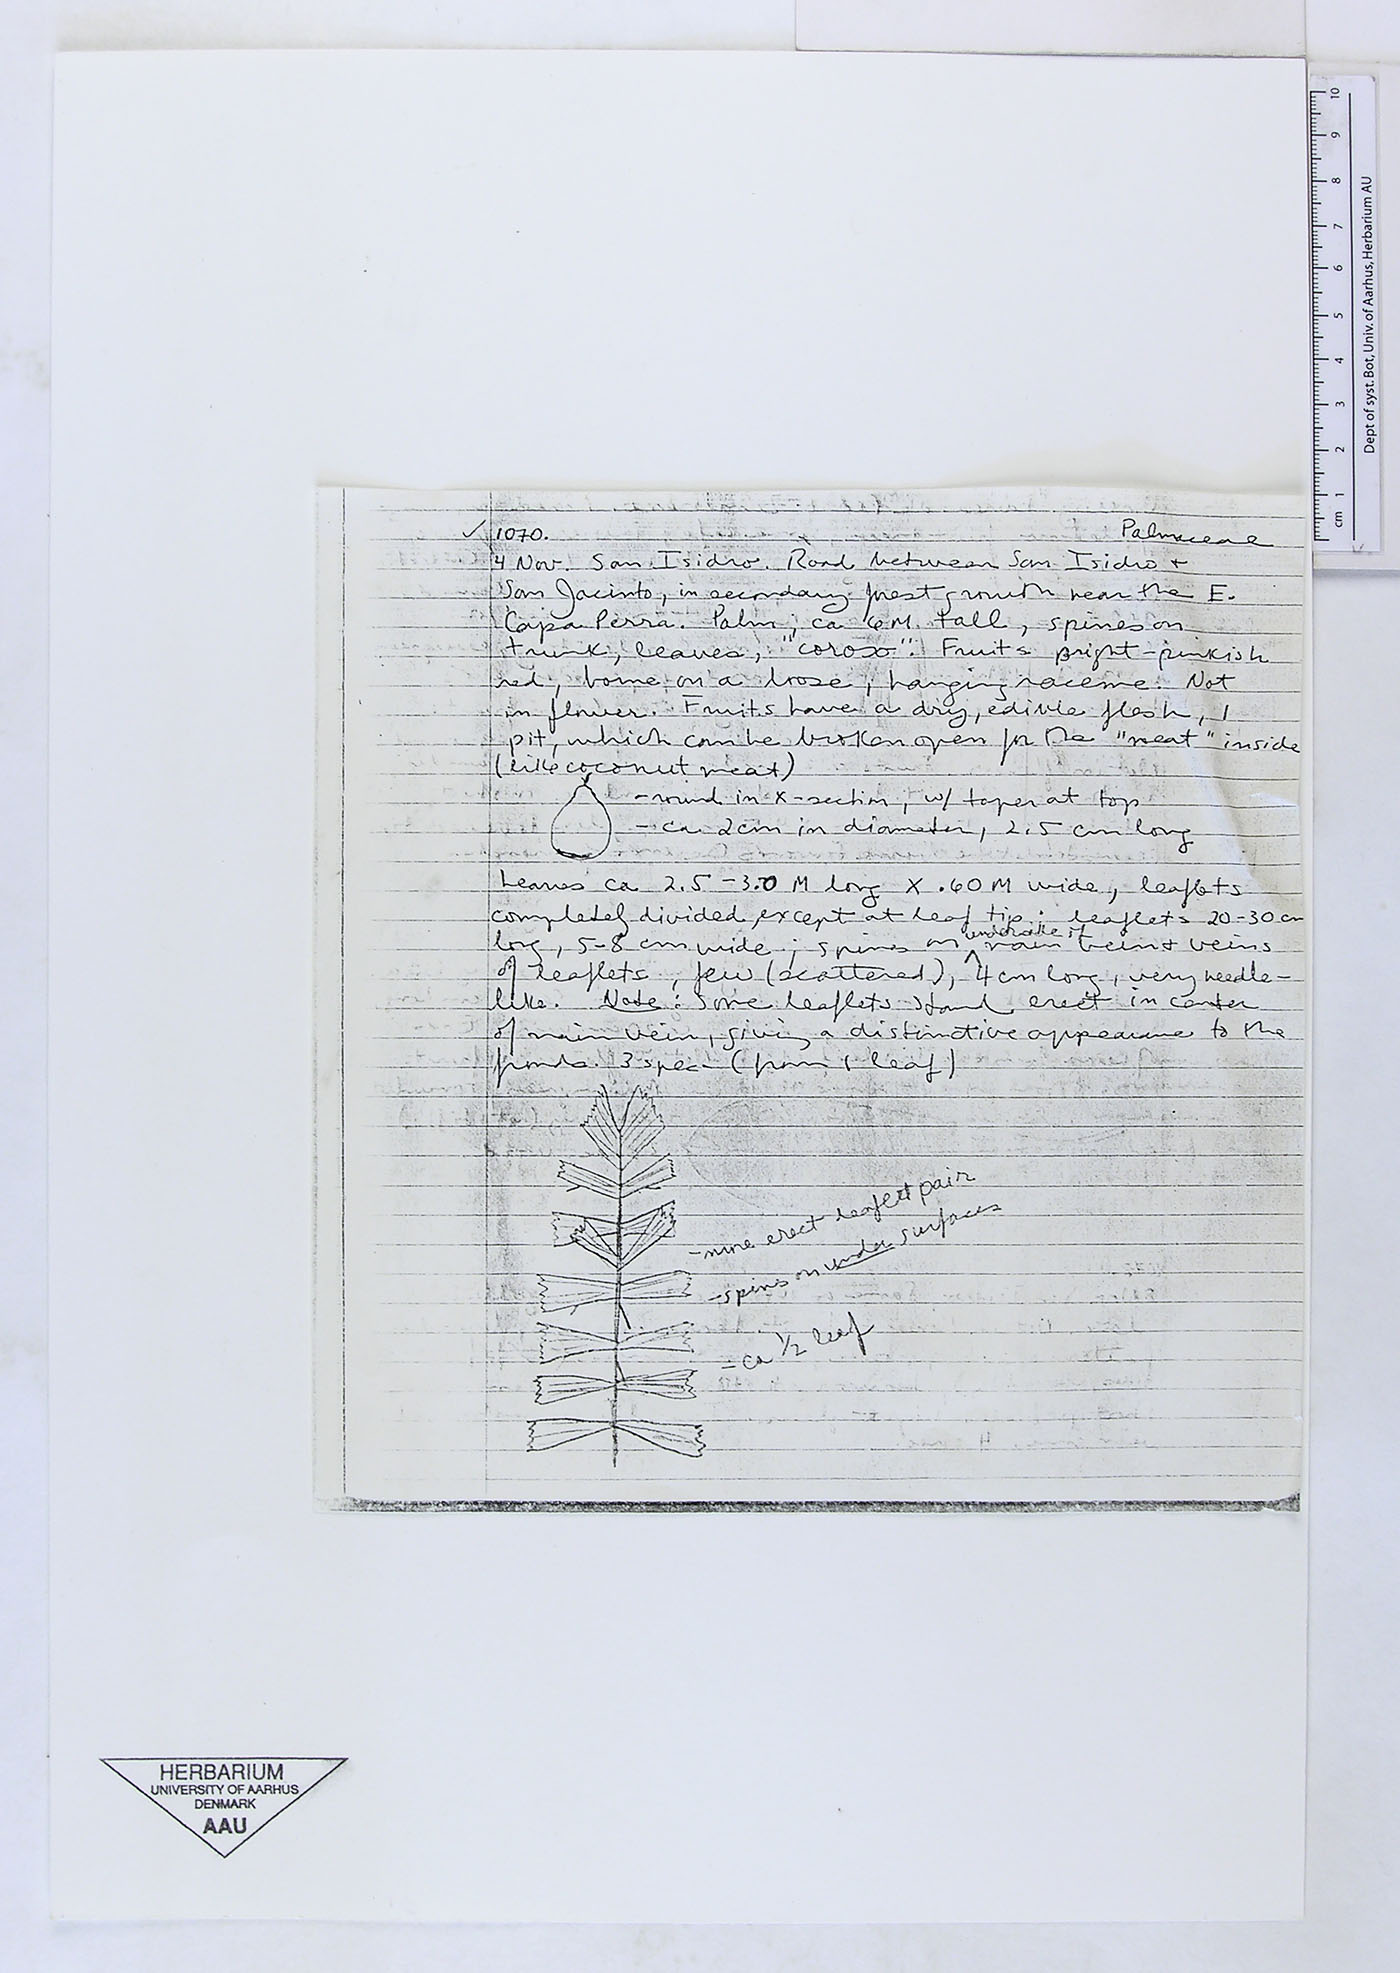 ✓ 1070. Palmaceae
4 Nov. San Isidro. Road between San Isidro +
San Jacinto, in secondary forest growth near the E.
Capa Perra. Palm, ca 6 M. tall, spines on
trunk, leaves, "coroso". Fruits bright-pinkish
red, borne on a loose, hanging raceme. Not
in flower. Fruits have a dry, edible flesh, 1
pit, which can be broken open for the "meat" inside
(like coconut meat)
- round in x-section, w/ taper at top
- ca 2 cm in diameter, 2.5 cm long
Leaves ca 2.5 - 3.0 M long X .60 M wide, leaflets
completely divided, except at leaf tip; leaflets 20-30 cm
underside of
long, 5-8 cm wide; spines on main vein + veins
of leaflets, few (scattered), 4 cm long, very needle-
like. Note: some leaflets stand erect in center
of main vein, giving a distinctive appearance to the
fronds. 3 spec. (from 1 leaf)
- erect leaflet pair
- spines on under surfaces
- ca 1/2 leaf
HERBARIUM
UNIVERSITY OF AARHUS
DENMARK
AAU
cm 1 2 3 4 5 6 7 8 9 10
Dept of syst. Bot, Univ. of Aarhus, Herbarium AU